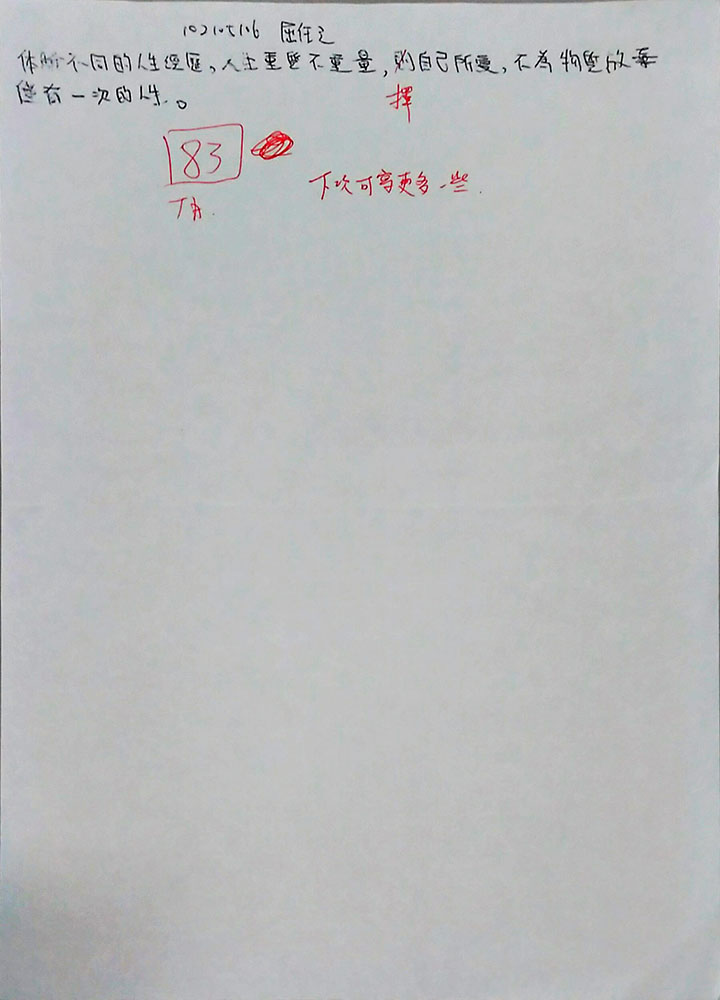 102105116 屈任之
体驗不同的人生經歷,人生重質不重量,則自己所愛,不為物質放棄
僅有一次的人生。
擇
83
TA.
下次可寫更多一些.